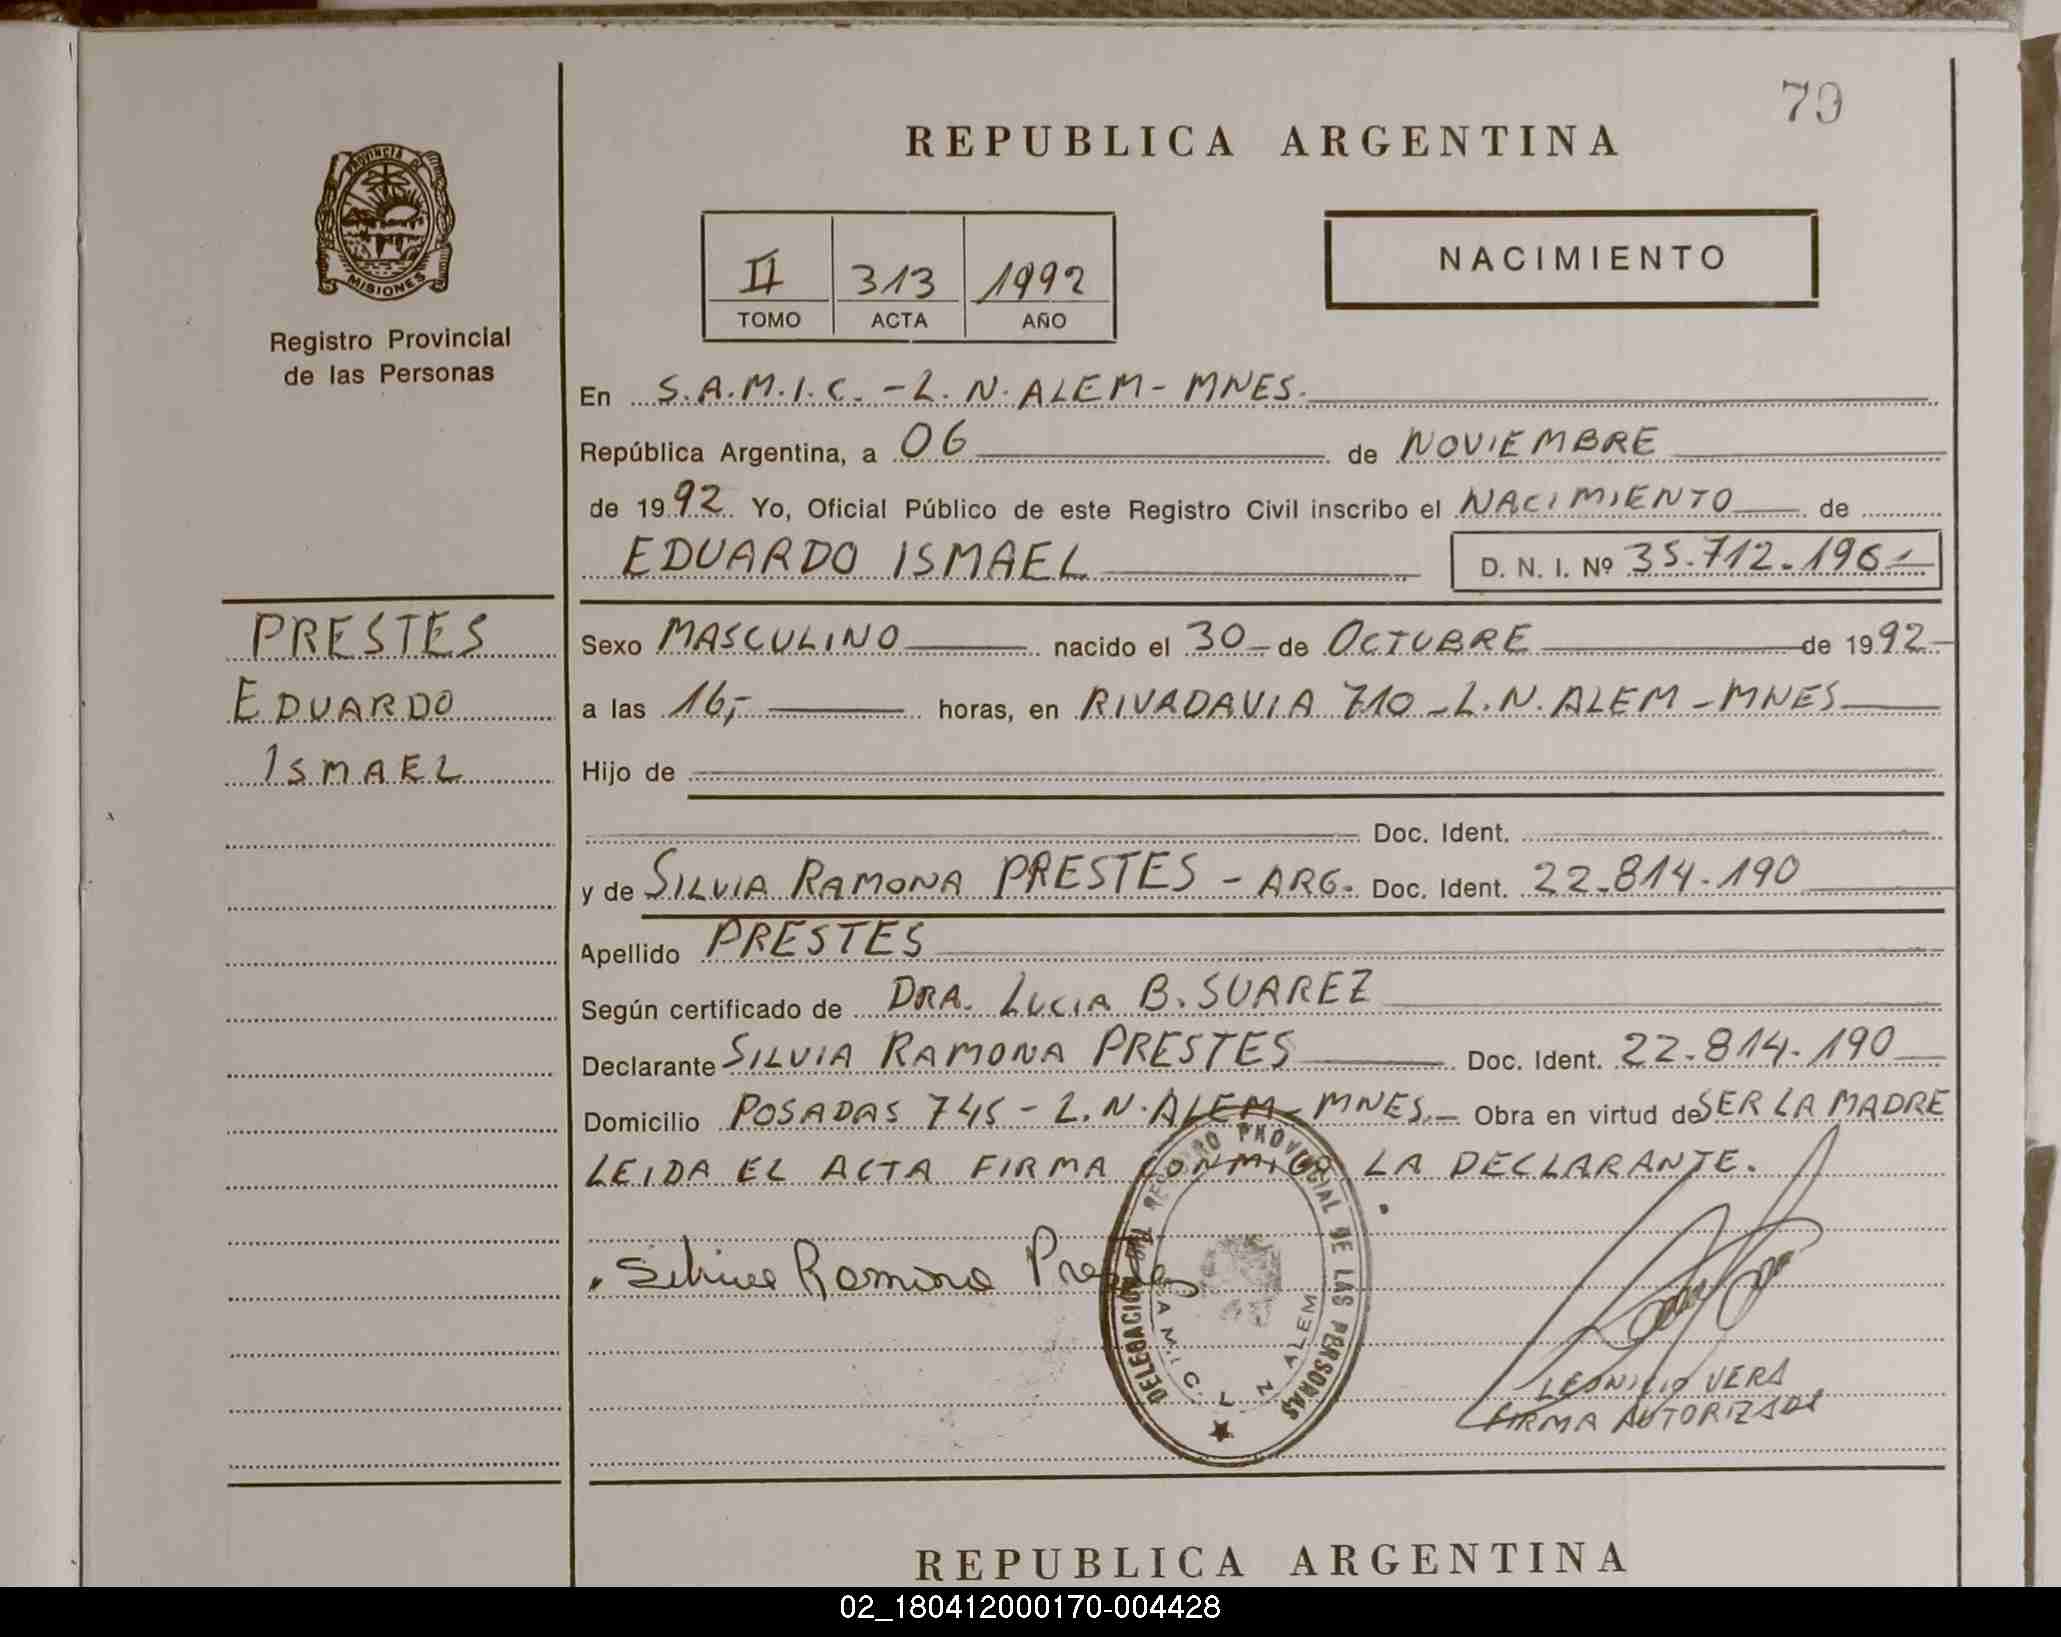 79
REPUBLICA ARGENTINA
PROVINCIA DE
MISIONES
Registro Provincial
de las Personas
II 313 1992
TOMO ACTA AÑO
NACIMIENTO
En S.A.M.I.C. - L. N. ALEM - MNES.
República Argentina, a 06 de NOVIEMBRE
de 1992 Yo, Oficial Público de este Registro Civil inscribo el NACIMIENTO de
EDUARDO ISMAEL D. N. I. Nº 35.712.196
PRESTES
EDUARDO
ISMAEL
Sexo MASCULINO nacido el 30 de OCTUBRE de 1992
a las 16,- horas, en RIVADAVIA 710 - L. N. ALEM - MNES
Hijo de
Doc. Ident.
y de SILVIA RAMONA PRESTES - ARG. Doc. Ident. 22.814.190
Apellido PRESTES
Según certificado de DRA. LUCIA B. SUAREZ
Declarante SILVIA RAMONA PRESTES Doc. Ident. 22.814.190
Domicilio POSADAS 745 - L. N. ALEM - MNES. Obra en virtud de SER LA MADRE
LEIDA EL ACTA FIRMA CONMIGO LA DECLARANTE.
Silvia Ramona Prestes
DELEGACION DEL REGISTRO PROVINCIAL DE LAS PERSONAS
S.A.M.I.C. L. N. ALEM
LEONICIO VERA
FIRMA AUTORIZADA
REPUBLICA ARGENTINA
02_180412000170-004428